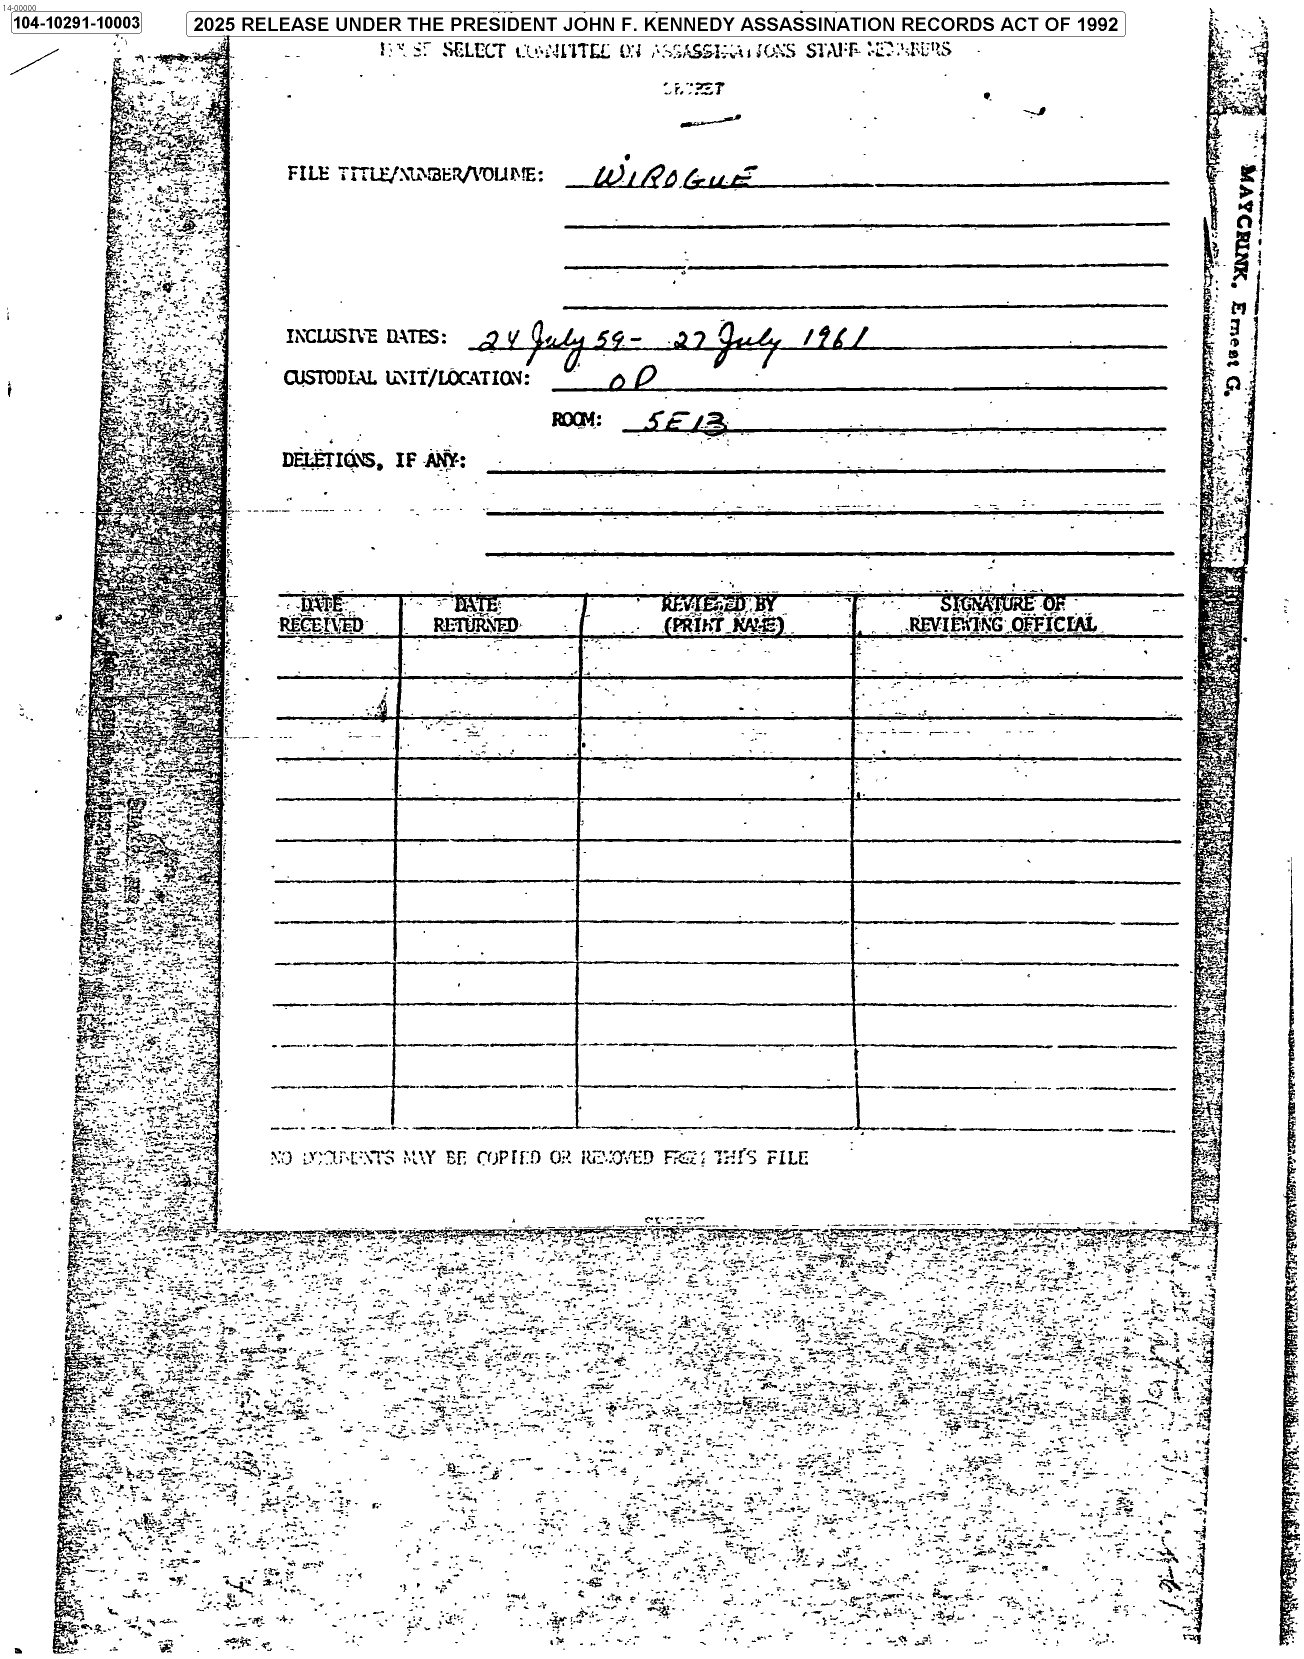 14-00000
104-10291-10003
2025 RELEASE UNDER THE PRESIDENT JOHN F. KENNEDY ASSASSINATION RECORDS ACT OF 1992
SELECT COMMITTEE ON ASSASSINATIONS STAFF MEMBERS
SECRET
FILE TITLE/NUMBER/VOLUME: WIROGUE
INCLUSIVE DATES: 24 July 59- 27 July 1961
CUSTODIAL UNIT/LOCATION: OP
ROOM: 5E13
DELETIONS, IF ANY:
DATE RECEIVED DATE RETURNED REVIEWED BY (PRINT NAME) SIGNATURE OF REVIEWING OFFICIAL
NO DOCUMENTS MAY BE COPIED OR REMOVED FROM THIS FILE
MAYCRINK, Ernest G.